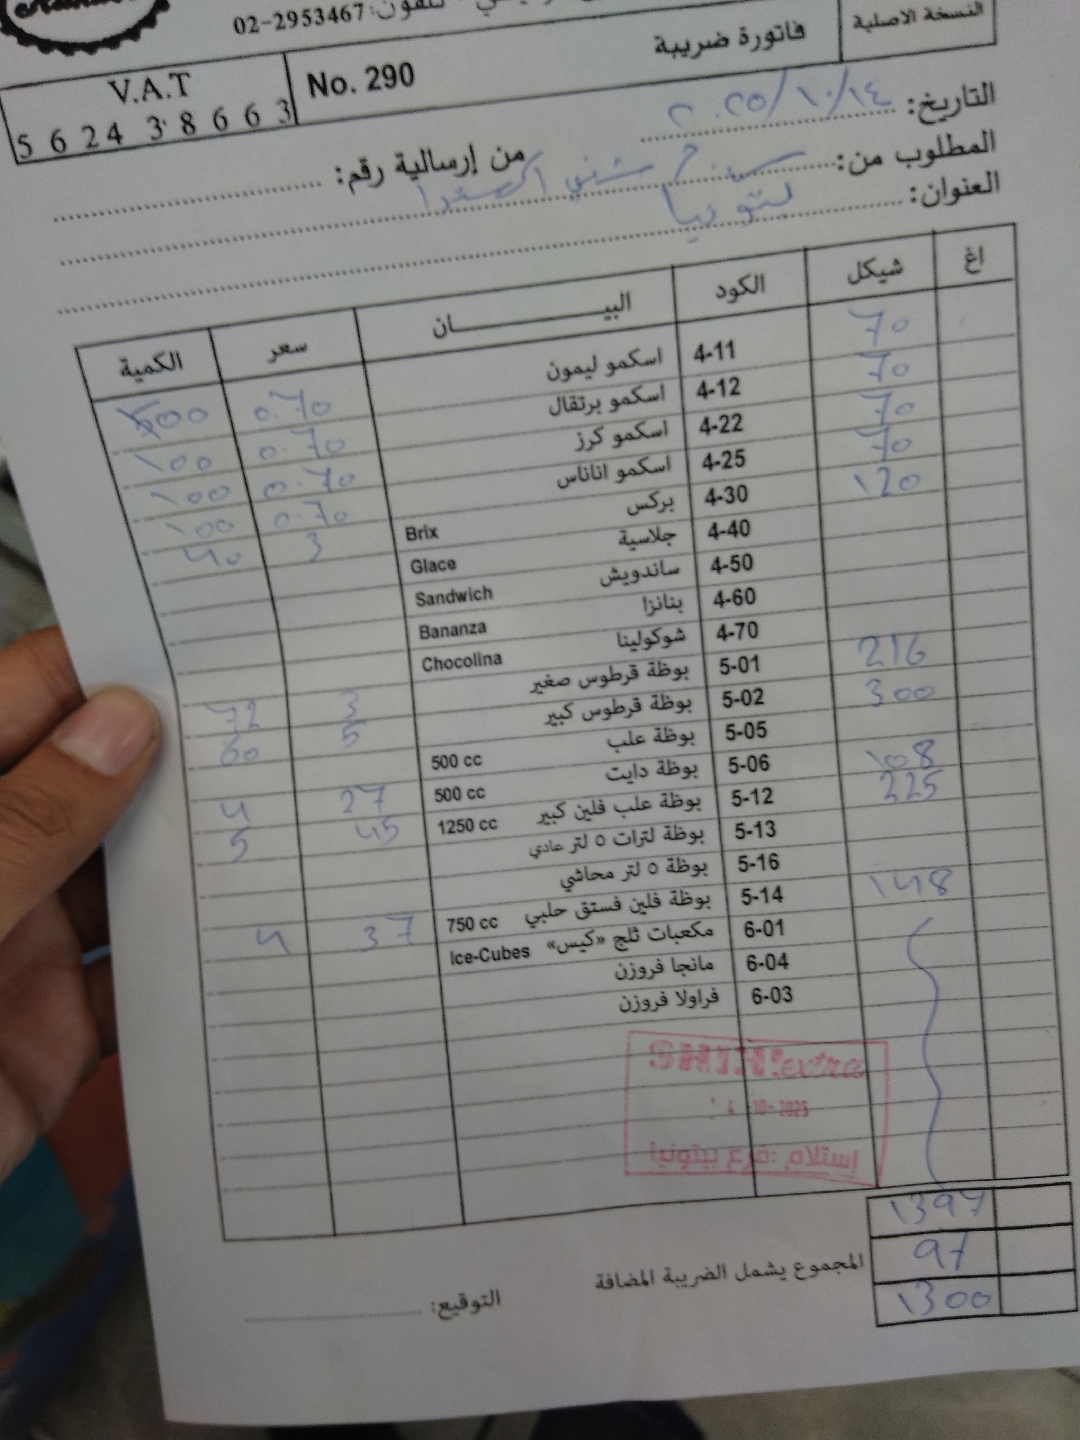 تلفون: 02-2953467
النسخة الاصلية
فاتورة ضريبة
No. 290
V.A.T
5 6 2 4 3 8 6 6 3
التاريخ: ٢٠٢٥/١٠/١٤
المطلوب من: شني اكسترا
من إرسالية رقم:
العنوان: بتونيا
اغ شيكل الكود البيـــــــان سعر الكمية
70 4-11 اسكمو ليمون 0.70 100
70 4-12 اسكمو برتقال 0.70 100
70 4-22 اسكمو كرز 0.70 100
70 4-25 اسكمو اناناس 0.70 100
120 4-30 بركس Brix 3 40
4-40 جلاسية Glace
4-50 ساندويش Sandwich
4-60 بنانزا Bananza
4-70 شوكولينا Chocolina
216 5-01 بوظة قرطوس صغير 3 72
300 5-02 بوظة قرطوس كبير 5 60
5-05 بوظة علب 500 cc
108 5-06 بوظة دايت 500 cc 27 4
225 5-12 بوظة علب فلين كبير 1250 cc 45 5
5-13 بوظة لترات ٥ لتر عادي
5-16 بوظة ٥ لتر محاشي
148 5-14 بوظة فلين فستق حلبي 750 cc 37 4
6-01 مكعبات ثلج «كيس» Ice-Cubes
6-04 مانجا فروزن
6-03 فراولا فروزن
SHINI extra
10-2025
إستلام :فرع بيتونيا
1397
97
المجموع يشمل الضريبة المضافة
1300
التوقيع: